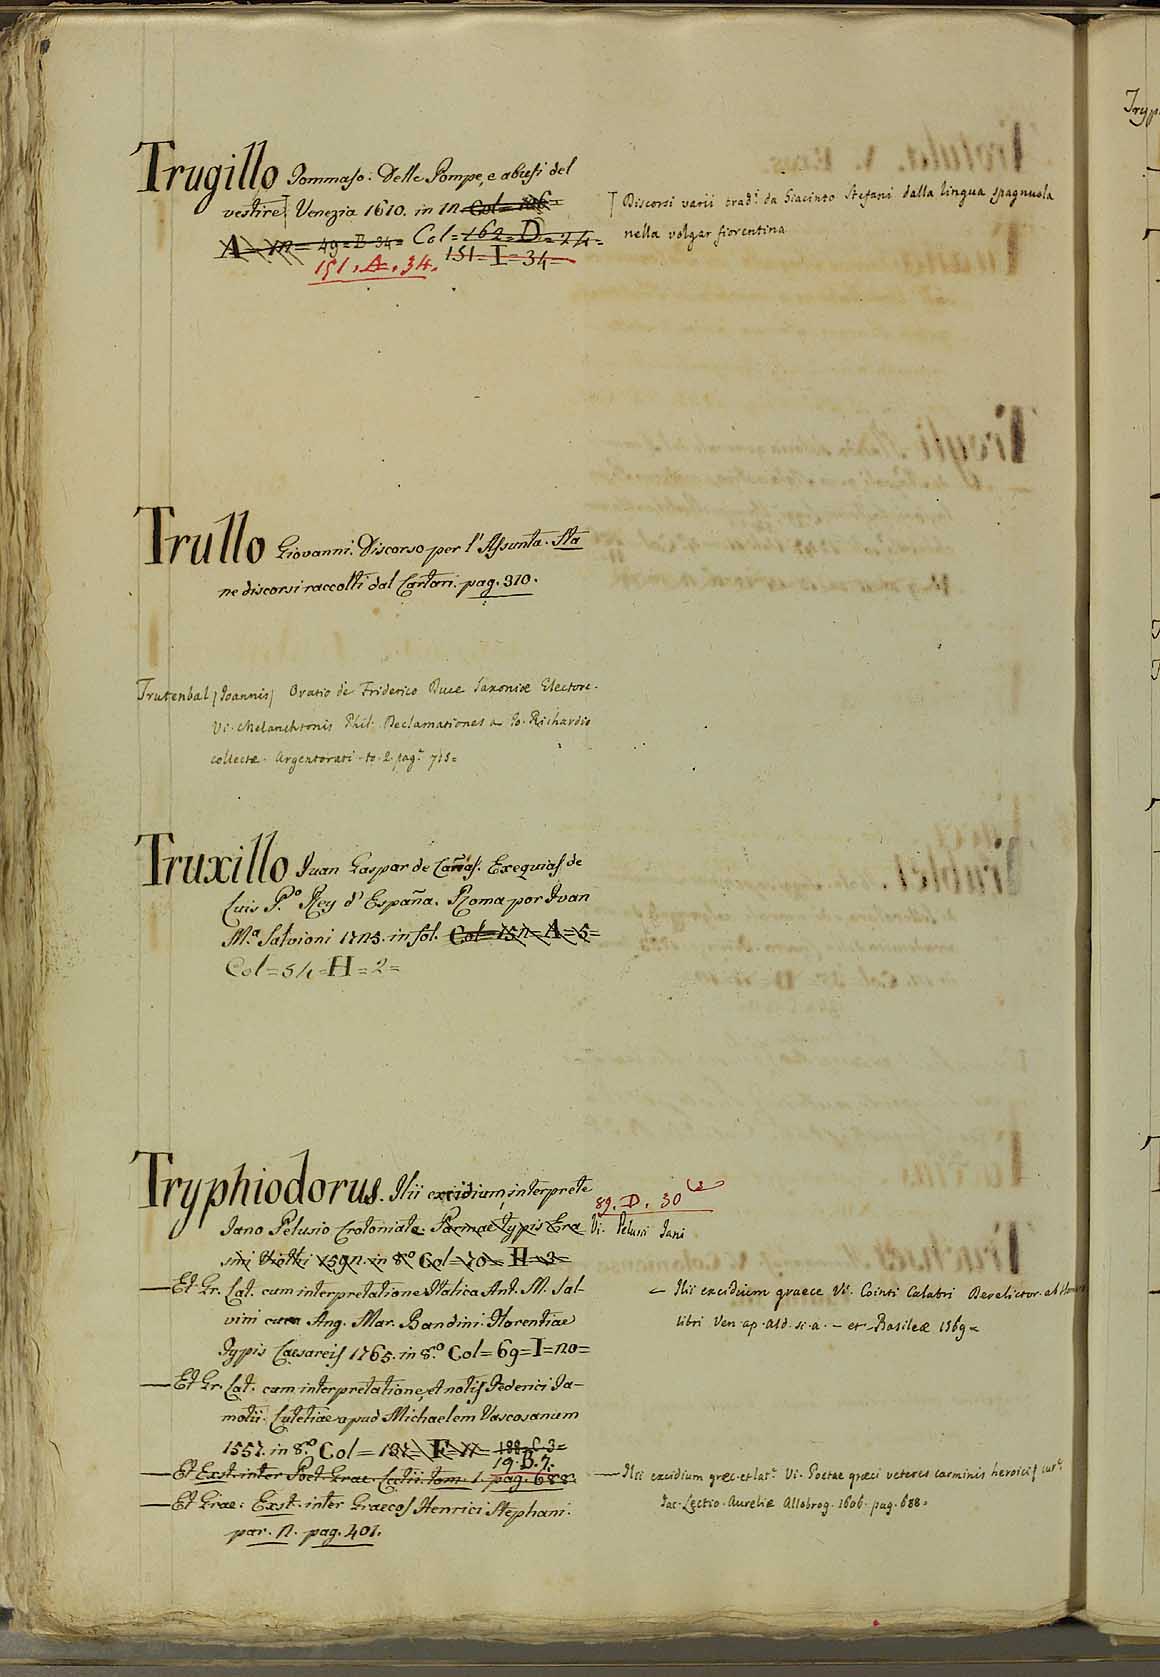 Trugillo Tommaso: Delle Pompe, e abusi del
vestire Venezia 1610. in 12 Col = 126 =
A = 12 = 49 = B 34 = Col = 162 = D = 24 =
151. A. 34. 151 = I = 34 =
Discorsi varii trad.i da Giacinto Stefani dalla lingua spagnuola
nella volgar fiorentina
Trullo Giovanni. Discorso per l'Assunta. Sta
ne discorsi raccolti dal Cartari. pag. 310.
Trutenbal (Joannis) Oratio de Friderico Duce Saxoniæ Electore.
Vi. Melanchtonis Phil. Declamationes a Jo. Richardio
collectæ. Argentorati. to. 2. pag.a 715 =
Truxillo Juan Gaspar de Cañas. Exequias de
Luis P.o Rey d'España. Roma por Juan
M.a Salvioni 1725. in fol. Col = 152 = A = 5 =
Col = 54 = H = 2 =
Tryphiodorus. Ilii excidium, interprete
89. D. 30
Jano Pelusio Crotoniata. Parmae typis Era
Vi. Pelusii Jani
smi Viotti 1592. in 8.o Col = 70 = H = 3 =
— Et Gr. Lat. cum interpretatione Italica Ant. M. Sal-
vini cura Ang. Mar. Bandini. Florentiae
Typis Caesareis 1765. in 8.o Col = 69 = I = 20 =
Ilii excidium graece Vi. Cointi Calabri Derelictor. ab Homero
libri Ven. ap. Ald. s. a. — et Basileæ 1569 =
— Et Gr. Lat. cum interpretatione, et notis Federici Ja-
motii. Lutetiae apud Michaelem Vascosanum
1557. in 8.o Col = 137 = F = 17 = 188 = C. 3 =
19. B. 7.
— Et Exst. inter Poet. Graec. Lectii. tom. 1. pag. 688.
— Et Grae: Exst. inter Graecos Henrici Stephani.
par. 2. pag. 401.
— Ilii excidium græc. et lat.e Vi. Poetae græci veteres carminis heroici cur.e
Jac. Lectio. Aureliæ Allobrog. 1606. pag. 688 =